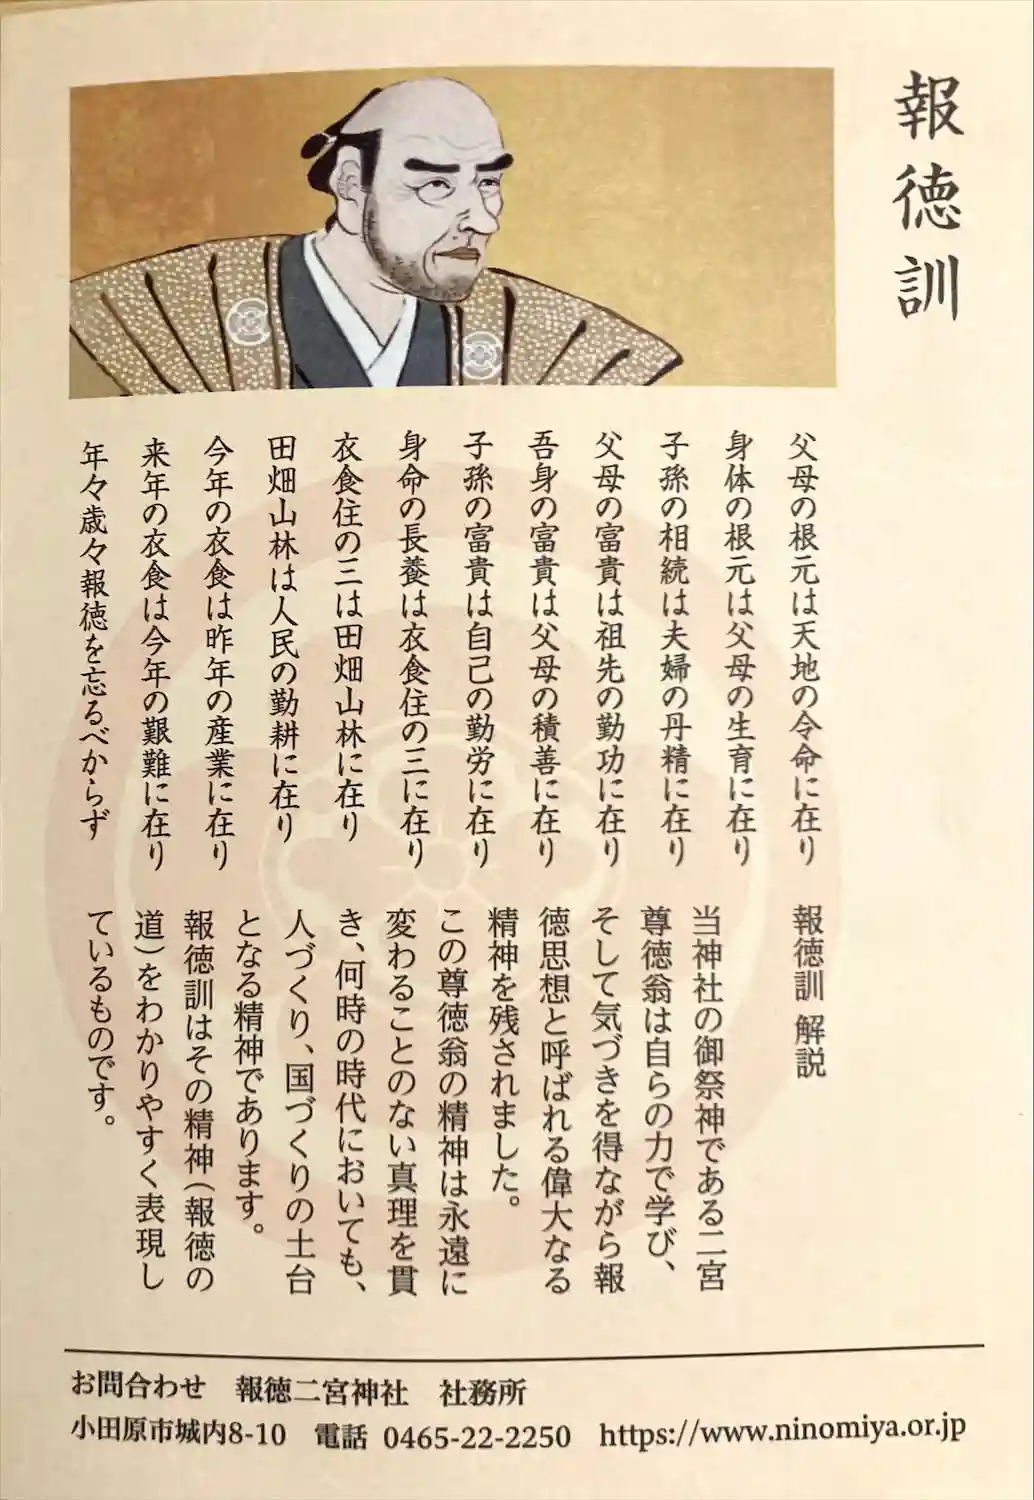 報徳訓
父母の根元は天地の令命に在り
身体の根元は父母の生育に在り
子孫の相続は夫婦の丹精に在り
父母の富貴は祖先の勤功に在り
吾身の富貴は父母の積善に在り
子孫の富貴は自己の勤労に在り
身命の長養は衣食住の三に在り
衣食住の三は田畑山林に在り
田畑山林は人民の勤耕に在り
今年の衣食は昨年の産業に在り
来年の衣食は今年の艱難に在り
年々歳々報徳を忘るべからず
報徳訓 解説
当神社の御祭神である二宮
尊徳翁は自らの力で学び、
そして気づきを得ながら報
徳思想と呼ばれる偉大なる
精神を残されました。
この尊徳翁の精神は永遠に
変わることのない真理を貫
き、何時の時代においても、
人づくり、国づくりの土台
となる精神であります。
報徳訓はその精神(報徳の
道)をわかりやすく表現し
ているものです。
お問合わせ 報徳二宮神社 社務所
小田原市城内8-10 電話 0465-22-2250 https://www.ninomiya.or.jp